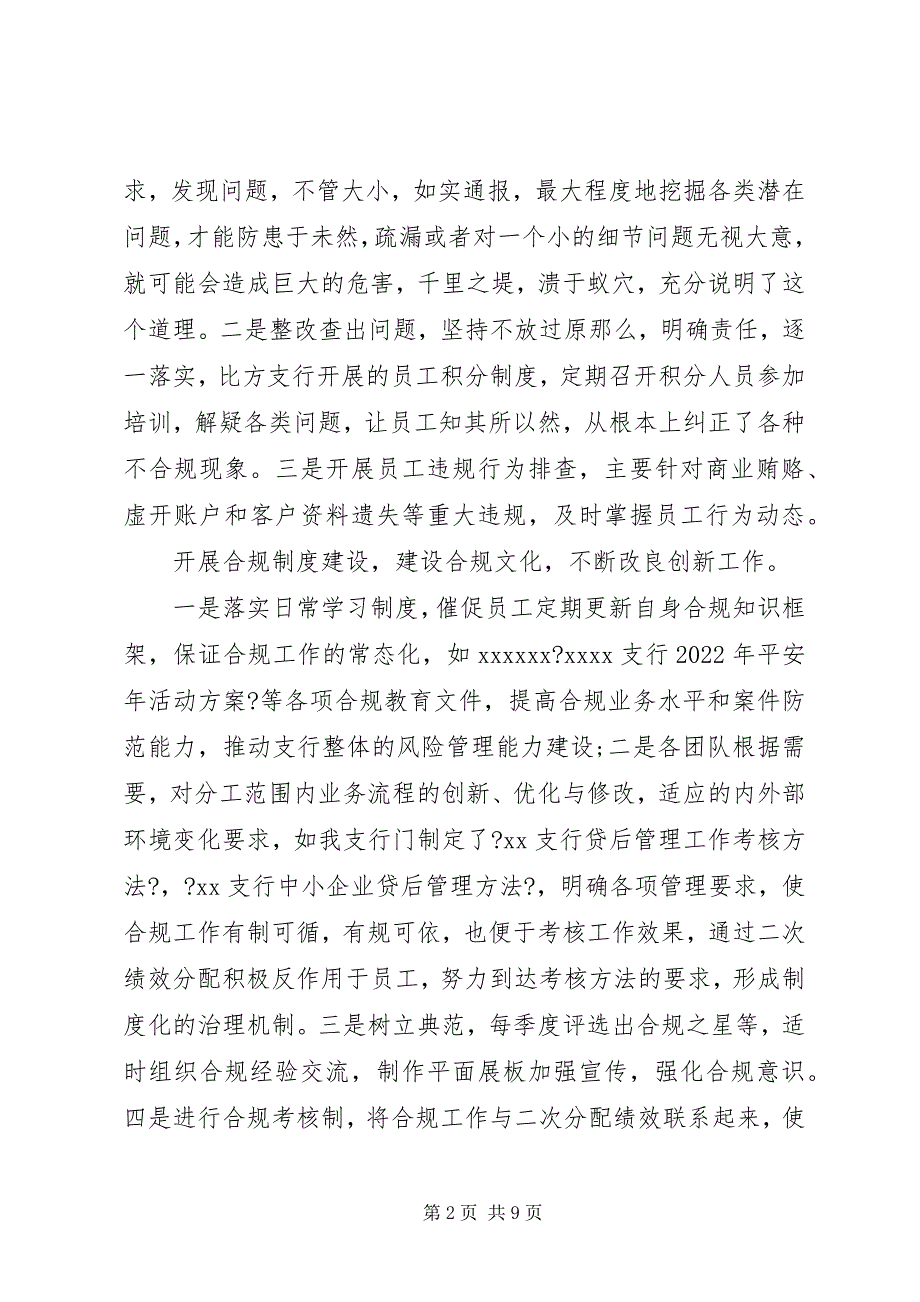 求，发现问题，不管大小，如实通报，最大程度地挖掘各类潜在
问题，才能防患于未然，疏漏或者对一个小的细节问题无视大意，
就可能会造成巨大的危害，千里之堤，溃于蚁穴，充分说明了这
个道理。二是整改查出问题，坚持不放过原那么，明确责任，逐
一落实，比方支行开展的员工积分制度，定期召开积分人员参加
培训，解疑各类问题，让员工知其所以然，从根本上纠正了各种
不合规现象。三是开展员工违规行为排查，主要针对商业贿赂、
虚开账户和客户资料遗失等重大违规，及时掌握员工行为动态。
开展合规制度建设，建设合规文化，不断改良创新工作。
一是落实日常学习制度，催促员工定期更新自身合规知识框
架，保证合规工作的常态化，如 xxxxxx?xxxx 支行 2022 年平安
年活动方案?等各项合规教育文件，提高合规业务水平和案件防
范能力，推动支行整体的风险管理能力建设;二是各团队根据需
要，对分工范围内业务流程的创新、优化与修改，适应的内外部
环境变化要求，如我支行门制定了?xx 支行贷后管理工作考核方
法?，?xx 支行中小企业贷后管理方法?，明确各项管理要求，使
合规工作有制可循，有规可依，也便于考核工作效果，通过二次
绩效分配积极反作用于员工，努力到达考核方法的要求，形成制
度化的治理机制。三是树立典范，每季度评选出合规之星等，适
时组织合规经验交流，制作平面展板加强宣传，强化合规意识。
四是进行合规考核制，将合规工作与二次分配绩效联系起来，使
第 2 页 共 9 页